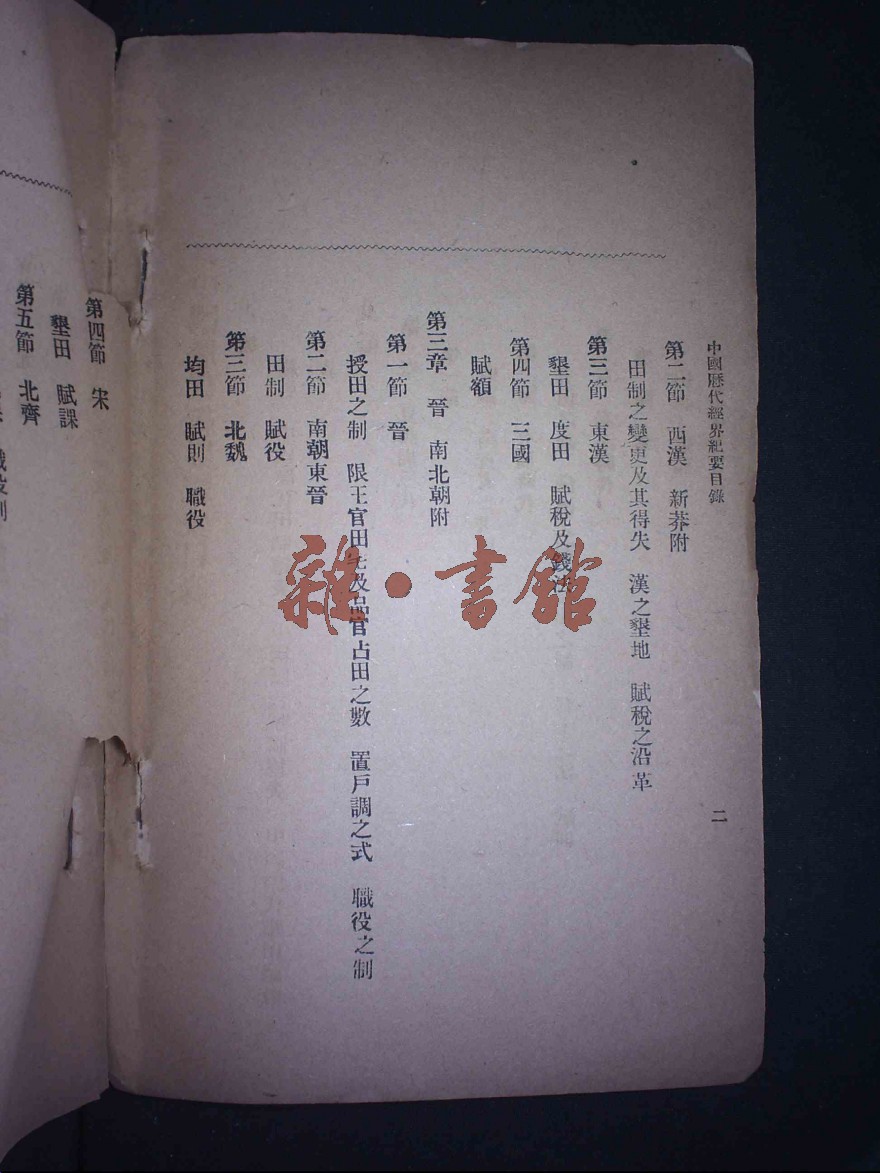 中國歷代經界紀要目錄
二
第二節　西漢　新莽附
田制之變更及其得失　漢之墾地　賦稅之沿革
第三節　東漢
墾田　度田　賦稅及錢法
第四節　三國
賦額
第三章　晉　南北朝附
第一節　晉
授田之制　限王官田宅及品官占田之數　置戶調之式　職役之制
第二節　南朝東晉
田制　賦役
第三節　北魏
均田　賦則　職役
第四節　宋
墾田　賦課
第五節　北齊
雜·書館